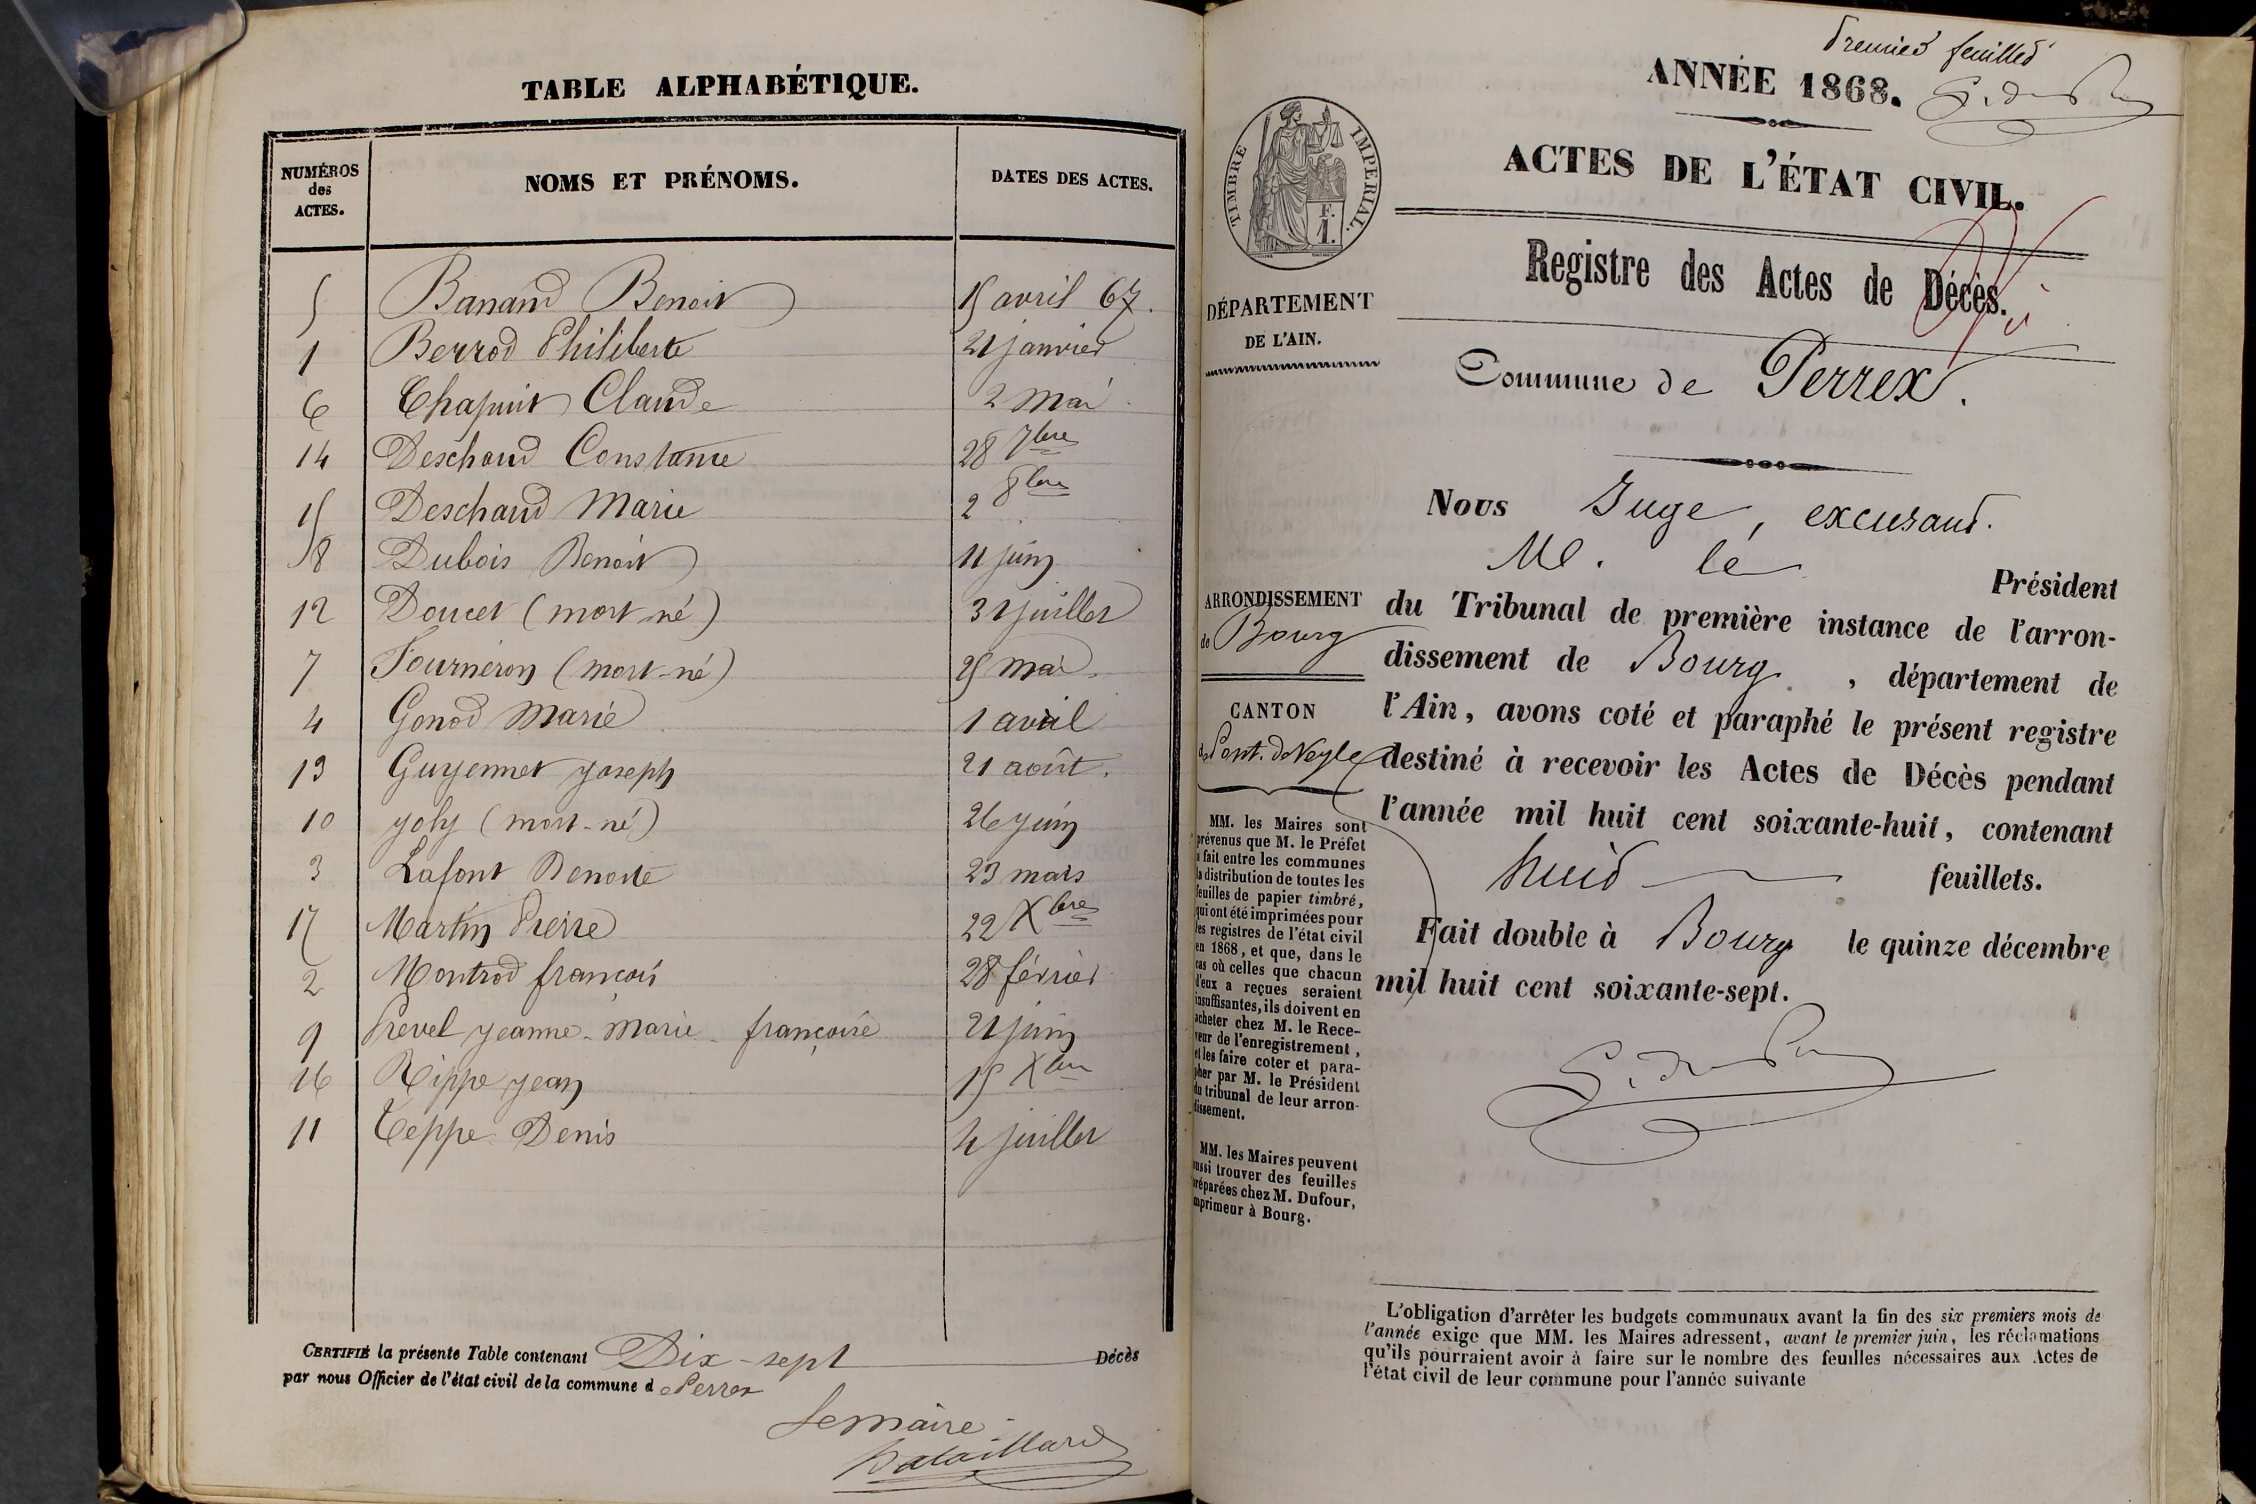 TABLE ALPHABÉTIQUE.
NUMÉROS des ACTES. NOMS ET PRÉNOMS. DATES DES ACTES.
5 Banand Benoit 15 avril 67.
1 Berrod Philiberte 21 janvier
6 Chapuit Claude 2 mai
14 Deschaud Constance 28 7bre
15 Deschaud Marie 2 8bre
8 Dubois Benoit 11 juin
12 Doucet (mort-né) 31 juillet
7 Fourneron (mort-né) 25 mai
4 Gonod Marie 1 avril
13 Guyennet joseph 21 août.
10 joly (mort-né) 26 juin
3 Lafont Benoite 23 mars
17 Martin Pierre 22 Xbre
2 Montrod françois 28 février
9 Prevel jeanne-marie-françoise 21 juin
16 Rippe jean 15 Xbre
11 Teppe Denis 4 juillet
CERTIFIÉ la présente Table contenant Dix-sept Décès
par nous Officier de l'état civil de la commune d Perrex
Le maire
Bataillard
Premier feuillet
ANNÉE 1868.
ACTES DE L'ÉTAT CIVIL.
TIMBRE IMPÉRIAL.
F.
1.
Registre des Actes de Décès.
DÉPARTEMENT
DE L'AIN.
Commune de Perrex.
Nous Juge, excusant
M. le Président
ARRONDISSEMENT
de Bourg
CANTON
de Pont-de-Veyle
du Tribunal de première instance de l'arron-
dissement de Bourg, département de
l'Ain, avons coté et paraphé le présent registre
destiné à recevoir les Actes de Décès pendant
l'année mil huit cent soixante-huit, contenant
huit feuillets.
Fait double à Bourg le quinze décembre
mil huit cent soixante-sept.
MM. les Maires sont
prévenus que M. le Préfet
a fait entre les communes
la distribution de toutes les
feuilles de papier timbré,
qui ont été imprimées pour
les registres de l'état civil
en 1868, et que, dans le
cas où celles que chacun
d'eux a reçues seraient
insuffisantes, ils doivent en
acheter chez M. le Rece-
veur de l'enregistrement,
et les faire coter et para-
pher par M. le Président
du tribunal de leur arron-
dissement.
MM. les Maires peuvent
aussi trouver des feuilles
préparées chez M. Dufour,
imprimeur à Bourg.
L'obligation d'arrêter les budgets communaux avant la fin des six premiers mois de
l'année exige que MM. les Maires adressent, avant le premier juin, les réclamations
qu'ils pourraient avoir à faire sur le nombre des feuilles nécessaires aux Actes de
l'état civil de leur commune pour l'année suivante